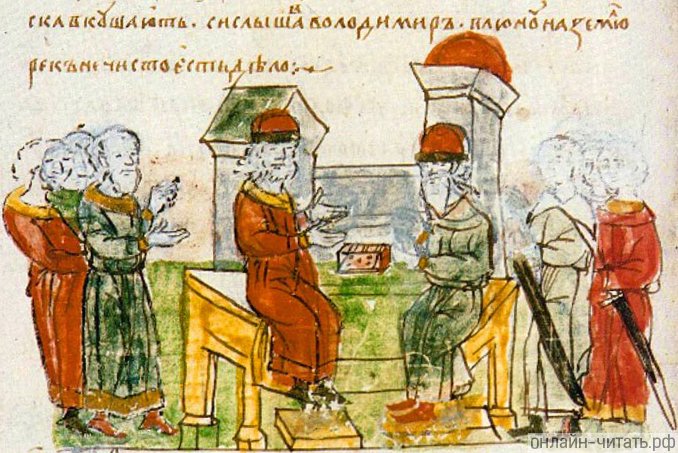 ска вкушають . си слышаⷡ володимиръ . плюнꙋ на землю
рекъ нечисто єсть дѣло :~
онлайн-читать.рф